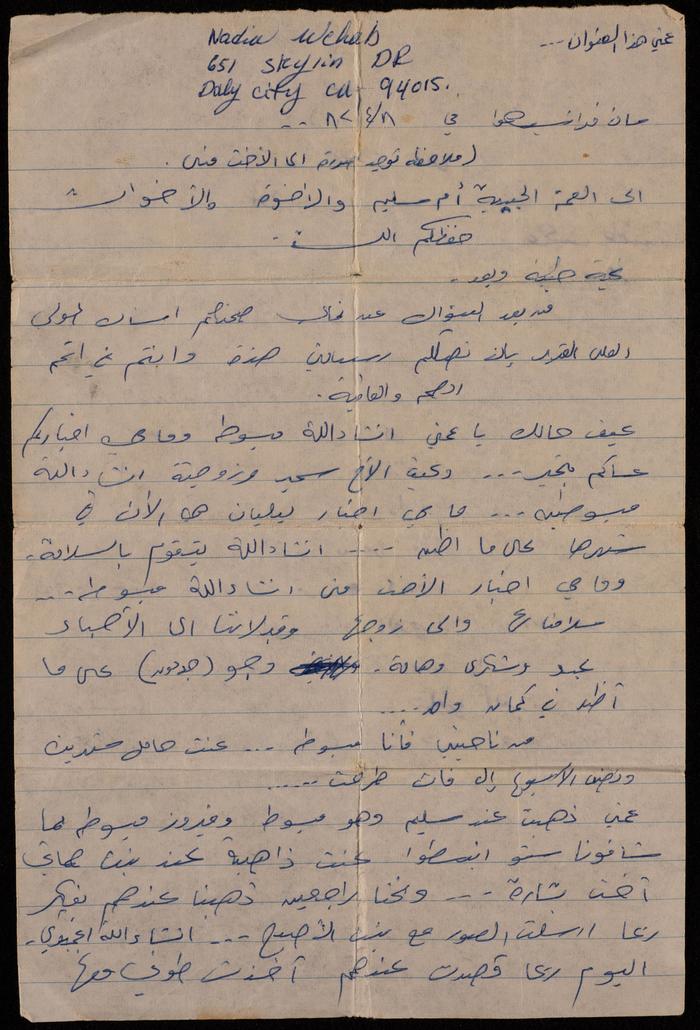 عمتي هذا العنوان ...
Nadia Wehab
651 Skylin DR
Daly City Ca 94015.
سان فرانسيسكو في ٨/٤/٨٢
(ملاحظة توجد صورة الى الأخت منى.
الى العمة الحبيبة أم سليم والاخوة والأخوات
حفظكم الله.
تحية طيبة وبعد.
من بعد السؤال عن صحتكم المولى
العلي القدير بأن تصلكم رسالتي هذه وانتم في اتم
الصحة والعافية.
كيف حالك يا عمتي انشاءالله مبسوطة وما هي اخباركم
عساكم بخير ... وكيف الأخ سعيد وزوجته انشاءالله
مبسوطين ... ما هي اخبار ليليان هي الأن في
شهرها على ما اظن .... انشاءالله بتقوم بالسلامة.
وما هي اخبار الأخت منى انشاءالله مبسوطة ...
سلامنا لها والى زوجها وقبلاتنا الى الأحباء
عبد وشكري وهالة. وجو (جدعون) على ما
أظن في كمان واحد ....
من ناحيتي فأنا مبسوطة ... كنت حامل شهرين
ونص الاسبوع إلي فات طرحت .....
عمتي ذهبت عند سليم وهو مبسوط وفيروز مبسوطة لما
شافونا شو انبسطوا كنت ذاهبة عند بنت خالتي
أخت بشارة ... ونحنا راجعين ذهبنا عندهم
ربما ارسلت الصور مع بنت ... انشاءالله اعجبوكي.
اليوم ربما قصدت عندهم أخذت طوني معها